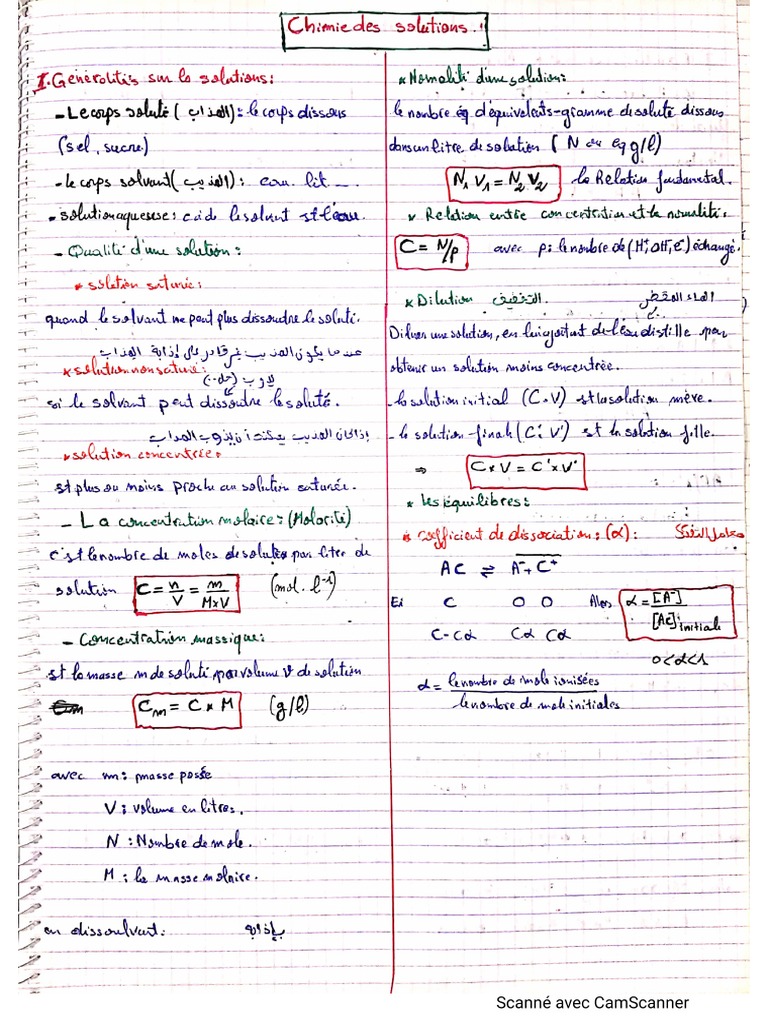 Chimie des solutions.
I. Généralités sur la solutions:
- Le corps soluté (المذاب): le corps dissous
(sel, sucre)
- le corps solvant (المذيب): eau. lit ...
- solution aqueuse: c.à.d le solvant st l'eau.
- Qualité d'une solution:
* solution saturée:
quand le solvant ne peut plus dissoudre le soluté.
عندما يكون المذيب غير قادر على إذابة المذاب
* solution non saturé:
si le solvant peut dissoudre le soluté.
إذا كان المذيب يمكنه أن يذوب المذاب
* solution concentrée:
st plus ou moins proche au solution saturée.
- La concentration molaire: (Molarité)
c'st le nombre de moles de soluté par liter de
solution C = n/V = m/M×V (mol. l⁻¹)
- Concentration massique:
st la masse m de soluté par volume V de solution
Cm = C × M (g/l)
avec m: masse posée
V: volume en litres.
N: Nombre de mole.
M: la masse molaire.
en dissoulvant: بإذابة
* Normalité d'une solution:
le nombre éq d'équivalents-gramme de soluté dissous
dans un litre de solution (N ou eq g/l)
N₁ V₁ = N₂ V₂ la Relation fundamental.
* Relation entre concentration et la normalité:
C = N/p avec p: le nombre de (H⁺, OH⁻, e⁻) échangé.
* Dilution التخفيف الماء المقطر
Diluer une solution, en lui ajoutant de l'eau distille pour
obtenir un solution moins concentrée.
- la solution initial (C.V) st la solution mère.
- la solution finale (C'. V') st la solution fille.
⇒ C × V = C' × V'
* les équilibres:
* coefficient de dissociation: (α): معامل التفكك
AC ⇌ A⁻ + C⁺
Ei C 0 0 Alors α = [A⁻]/[AC]initiale
C-Cα Cα Cα
0<α<1
α = le nombre de mole ionisées
le nombre de mole initiales
Scanné avec CamScanner